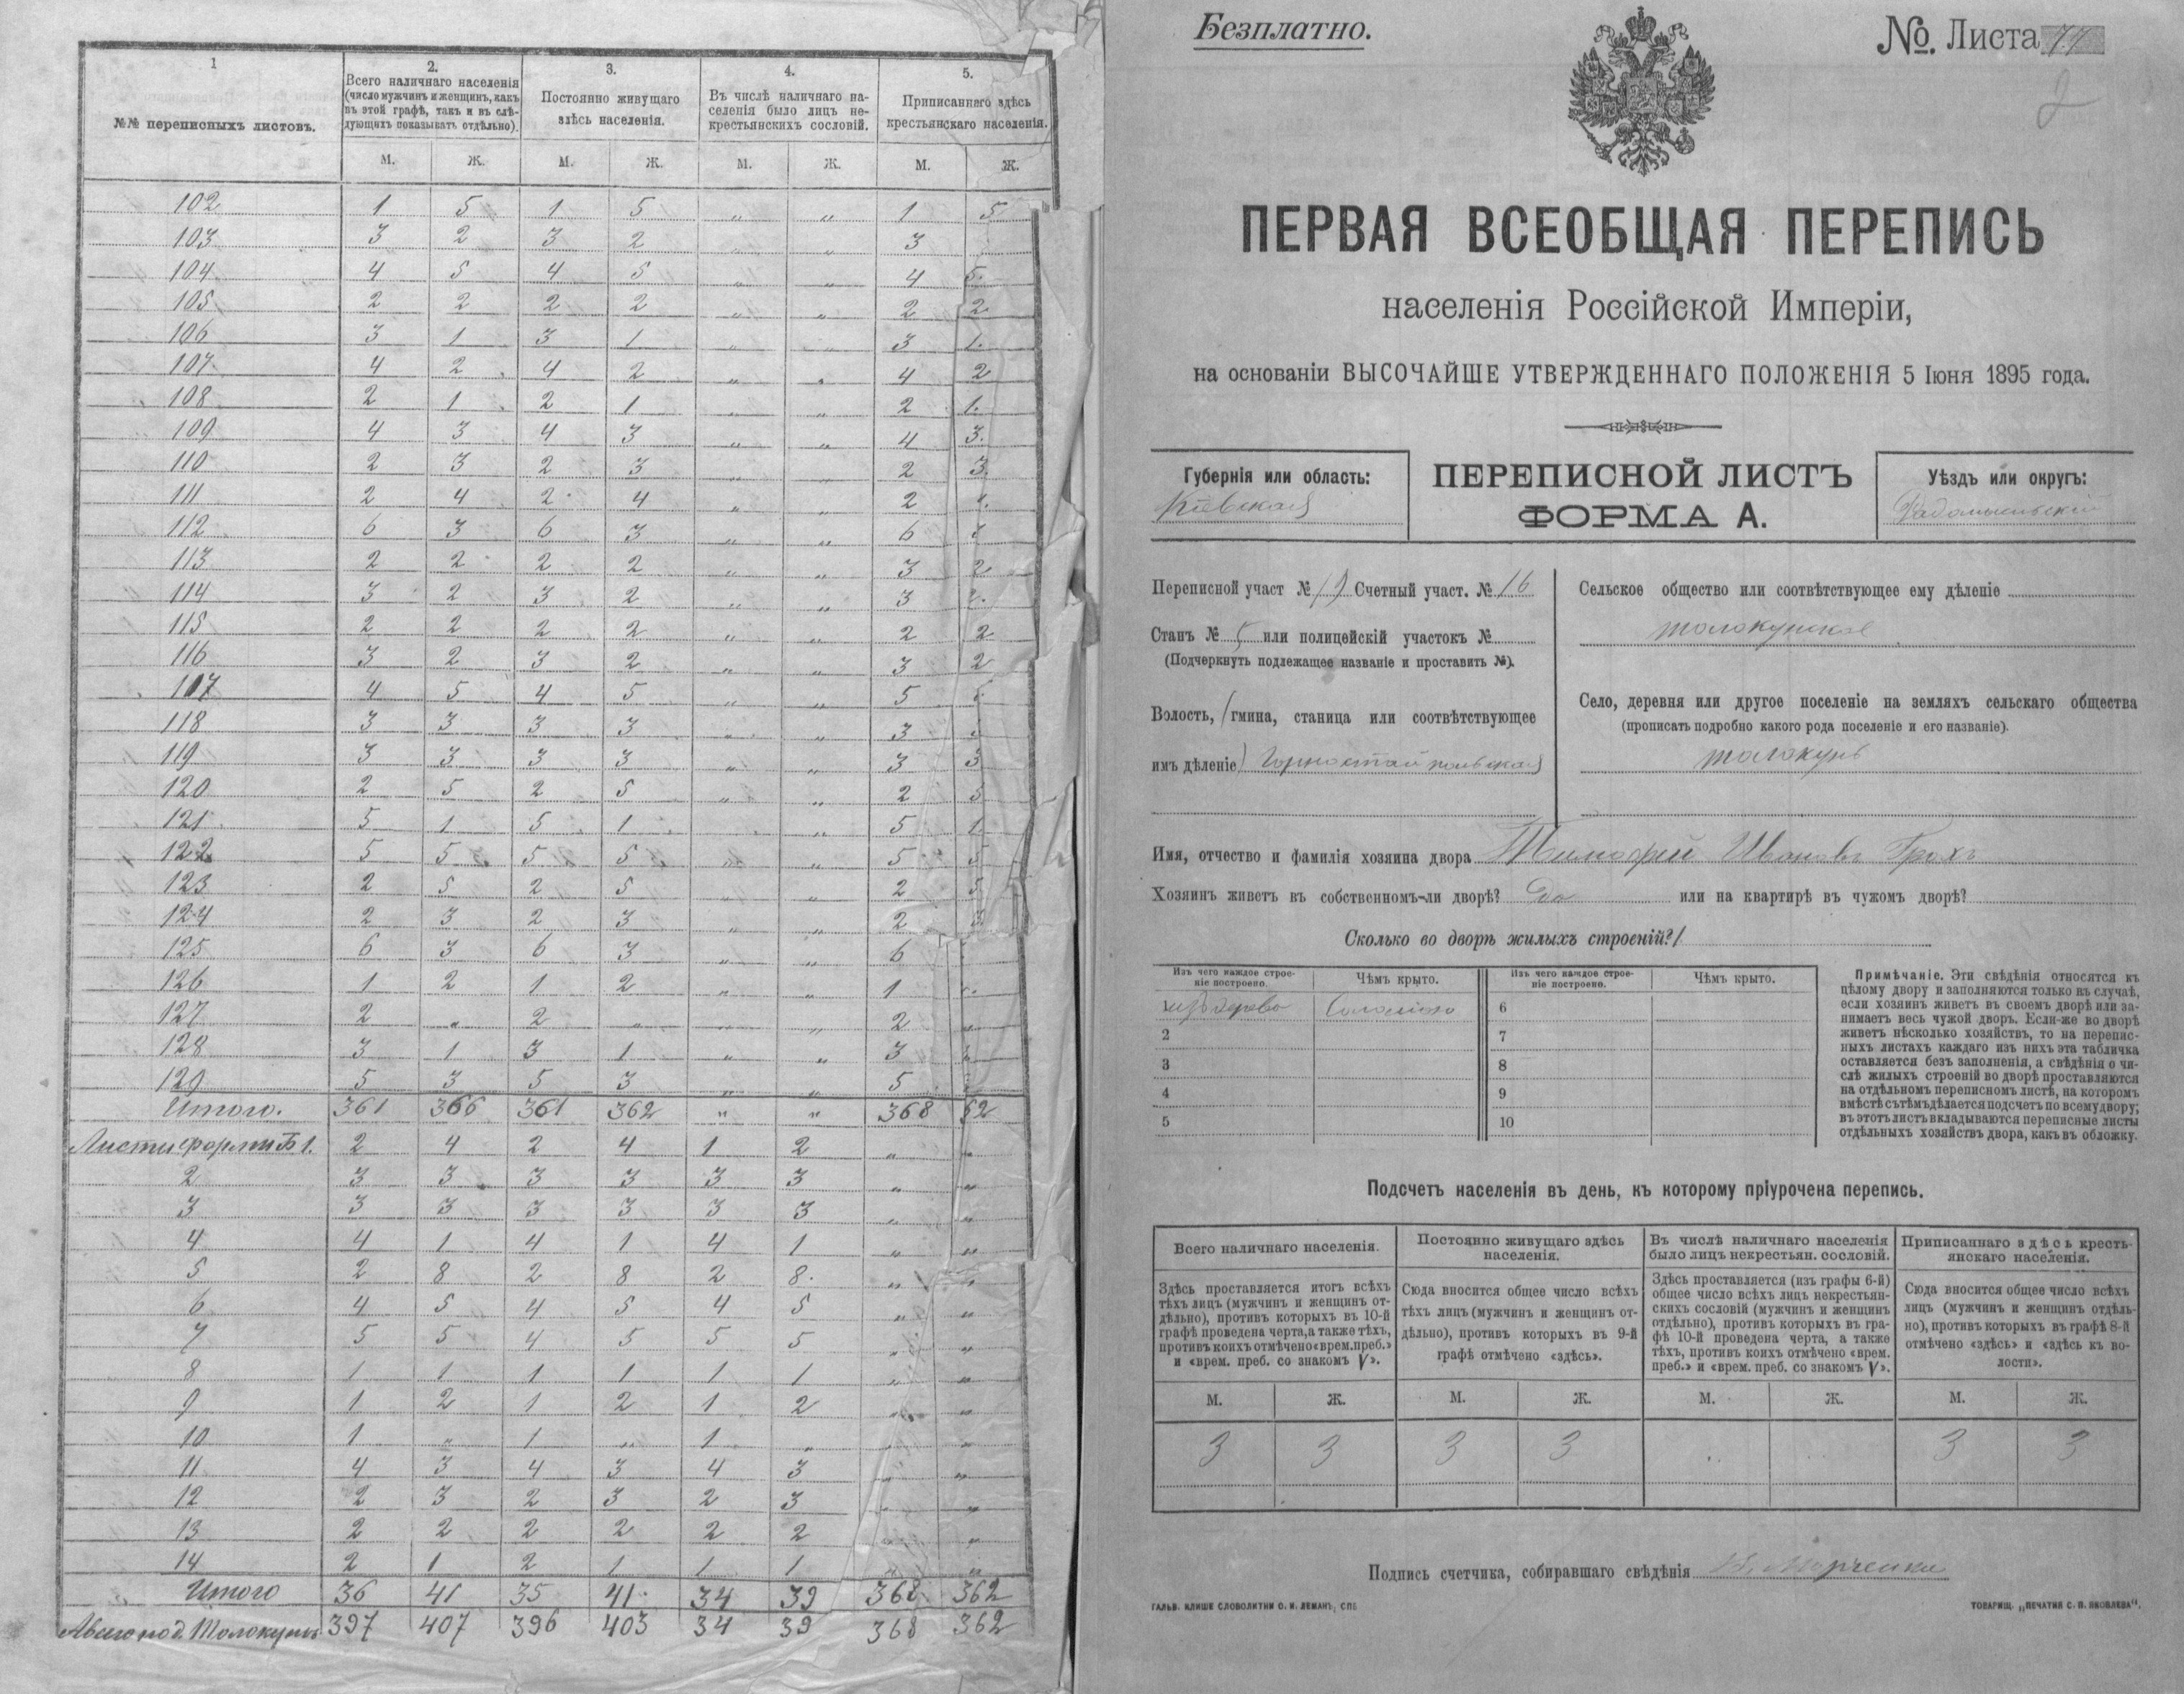 1
2.
3.
4.
5.
№№ переписныхъ листовъ.
Всего наличнаго населенія
(число мужчинъ и женщинъ, какъ
въ этой графѣ, такъ и въ слѣ-
дующихъ показывать отдѣльно).
Постоянно живущаго
здѣсь населенія.
Въ числѣ наличнаго на-
селенія было лицъ не-
крестьянскихъ сословій.
Приписаннаго здѣсь
крестьянскаго населенія.
М. Ж. М. Ж. М. Ж. М. Ж.
102 1 5 1 5 „ „ 1 5
103 3 2 3 2 „ „ 3
104 4 5 4 5 „ „ 4 5.
105 2 2 2 2 „ „ 2 2
106 3 1 3 1 „ „ 3 1.
107 4 2 4 2 „ „ 4 2
108 2 1 2 1 „ „ 2 1.
109 4 3 4 3 „ „ 4 3.
110 2 3 2 3 „ „ 2 3.
111 2 4 2 4 „ „ 2
112 6 3 6 3 „ „ 6
113 2 2 2 2 „ „ 3 2
114 3 2 3 2 „ „ 3 2.
115 2 2 2 2 „ „ 2 2
116 3 2 3 2 „ „ 3 2
117 4 5 4 5 „ „ 5
118 3 3 3 3 „ „ 3
119 3 3 3 3 „ „ 3 3
120 2 5 2 5 „ „ 2 5
121 5 1 5 1 „ „ 5 1.
122 5 5 5 5 „ „ 5 5
123 2 5 2 5 „ „ 2 5
124 2 3 2 3 „ „ 2 3
125 6 3 6 3 „ „ 6
126 1 2 1 2 „ „ 1
127 2 „ 2 „ „ „ 2 „
128 3 1 3 1 „ „ 3
129 5 3 5 3 „ „ 5
Итого. 361 366 361 362 „ „ 368 62
Листи форми Б 1. 2 4 2 4 1 2 „ „
2 3 3 3 3 3 3 „ „
3 3 3 3 3 3 3 „ „
4 4 1 4 1 4 1 „ „
5 2 8 2 8 2 8. „ „
6 4 5 4 5 4 5 „ „
7 5 5 4 5 5 5 „ „
8 1 1 1 1 1 1 „ „
9 1 2 1 2 1 2 „ „
10 1 „ 1 „ 1 „ „ „
11 4 3 4 3 4 3 „ „
12 2 3 2 3 2 3 „ „
13 2 2 2 2 2 2 „ „
14 2 1 2 1 1 1 „ „
Итого 36 41 35 41. 34 39 368 362
Толокунь 397 407 396 403 34 39 368 362
Безплатно.
№. Листа 77
2
ПЕРВАЯ ВСЕОБЩАЯ ПЕРЕПИСЬ
населенія Россійской Имперіи,
на основаніи ВЫСОЧАЙШЕ УТВЕРЖДЕННАГО ПОЛОЖЕНІЯ 5 Іюня 1895 года.
Губернія или область:
Кіевская
ПЕРЕПИСНОЙ ЛИСТЪ
ФОРМА А.
Уѣздъ или округъ:
Радомысльскій
Переписной участ № 19 Счетный участ. № 16
Станъ № 5 или полицейскій участокъ №
(Подчеркнуть подлежащее названіе и проставить №).
Волость, (гмина, станица или соотвѣтствующее
имъ дѣленіе) Горностайпольская
Сельское общество или соотвѣтствующее ему дѣленіе
толокунское
Село, деревня или другое поселеніе на земляхъ сельскаго общества
(прописать подробно какого рода поселеніе и его названіе).
толокунь
Имя, отчество и фамилія хозяина двора Тимофей Ивановъ Грохъ
Хозяинъ живетъ въ собственномъ-ли дворѣ? да или на квартирѣ въ чужомъ дворѣ?
Сколько во дворѣ жилыхъ строеній? 1
Изъ чего каждое строе-
ніе построено.
Чѣмъ крыто.
Изъ чего каждое строе-
ніе построено.
Чѣмъ крыто.
1 изъ дерева Соломою 6
2 7
3 8
4 9
5 10
Примѣчаніе. Эти свѣдѣнія относятся къ
цѣлому двору и заполняются только въ случаѣ,
если хозяинъ живетъ въ своемъ дворѣ или за-
нимаетъ весь чужой дворъ. Если-же во дворѣ
живетъ нѣсколько хозяйствъ, то на перепис-
ныхъ листахъ каждаго изъ нихъ эта табличка
оставляется безъ заполненія, а свѣдѣнія о чи-
слѣ жилыхъ строеній во дворѣ проставляются
на отдѣльномъ переписномъ листѣ, на которомъ
вмѣстѣ съ тѣмъ дѣлается подсчетъ по всему двору;
въ этотъ листъ вкладываются переписные листы
отдѣльныхъ хозяйствъ двора, какъ въ обложку.
Подсчетъ населенія въ день, къ которому пріурочена перепись.
Всего наличнаго населенія.
Постоянно живущаго здѣсь
населенія.
Въ числѣ наличнаго населенія
было лицъ некрестьян. сословій.
Приписаннаго здѣсь кресть-
янскаго населенія.
Здѣсь проставляется итогъ всѣхъ
тѣхъ лицъ (мужчинъ и женщинъ от-
дѣльно), противъ которыхъ въ 10-й
графѣ проведена черта, а также тѣхъ,
противъ коихъ отмѣчено «врем. преб.»
и «врем. преб. со знакомъ V».
Сюда вносится общее число всѣхъ
тѣхъ лицъ (мужчинъ и женщинъ от-
дѣльно), противъ которыхъ въ 9-й
графѣ отмѣчено «здѣсь».
Здѣсь проставляется (изъ графы 6-й)
общее число всѣхъ лицъ некрестьян-
скихъ сословій (мужчинъ и женщинъ
отдѣльно), противъ которыхъ въ гра-
фѣ 10-й проведена черта, а также
тѣхъ, противъ коихъ отмѣчено «врем.
преб.» и «врем. преб. со знакомъ V».
Сюда вносится общее число всѣхъ
лицъ (мужчинъ и женщинъ отдѣль-
но), противъ которыхъ въ графѣ 8-й
отмѣчено «здѣсь» и «здѣсь къ во-
лости».
М. Ж. М. Ж. М. Ж. М. Ж.
3 3 3 3 . . 3 3
Подпись счетчика, собиравшаго свѣдѣнія
ГАЛЬВ. КЛИШЕ СЛОВОЛИТНИ О. И. ЛЕМАНЪ, СПБ
ТОВАРИЩ. „ПЕЧАТНЯ С. П. ЯКОВЛЕВА".